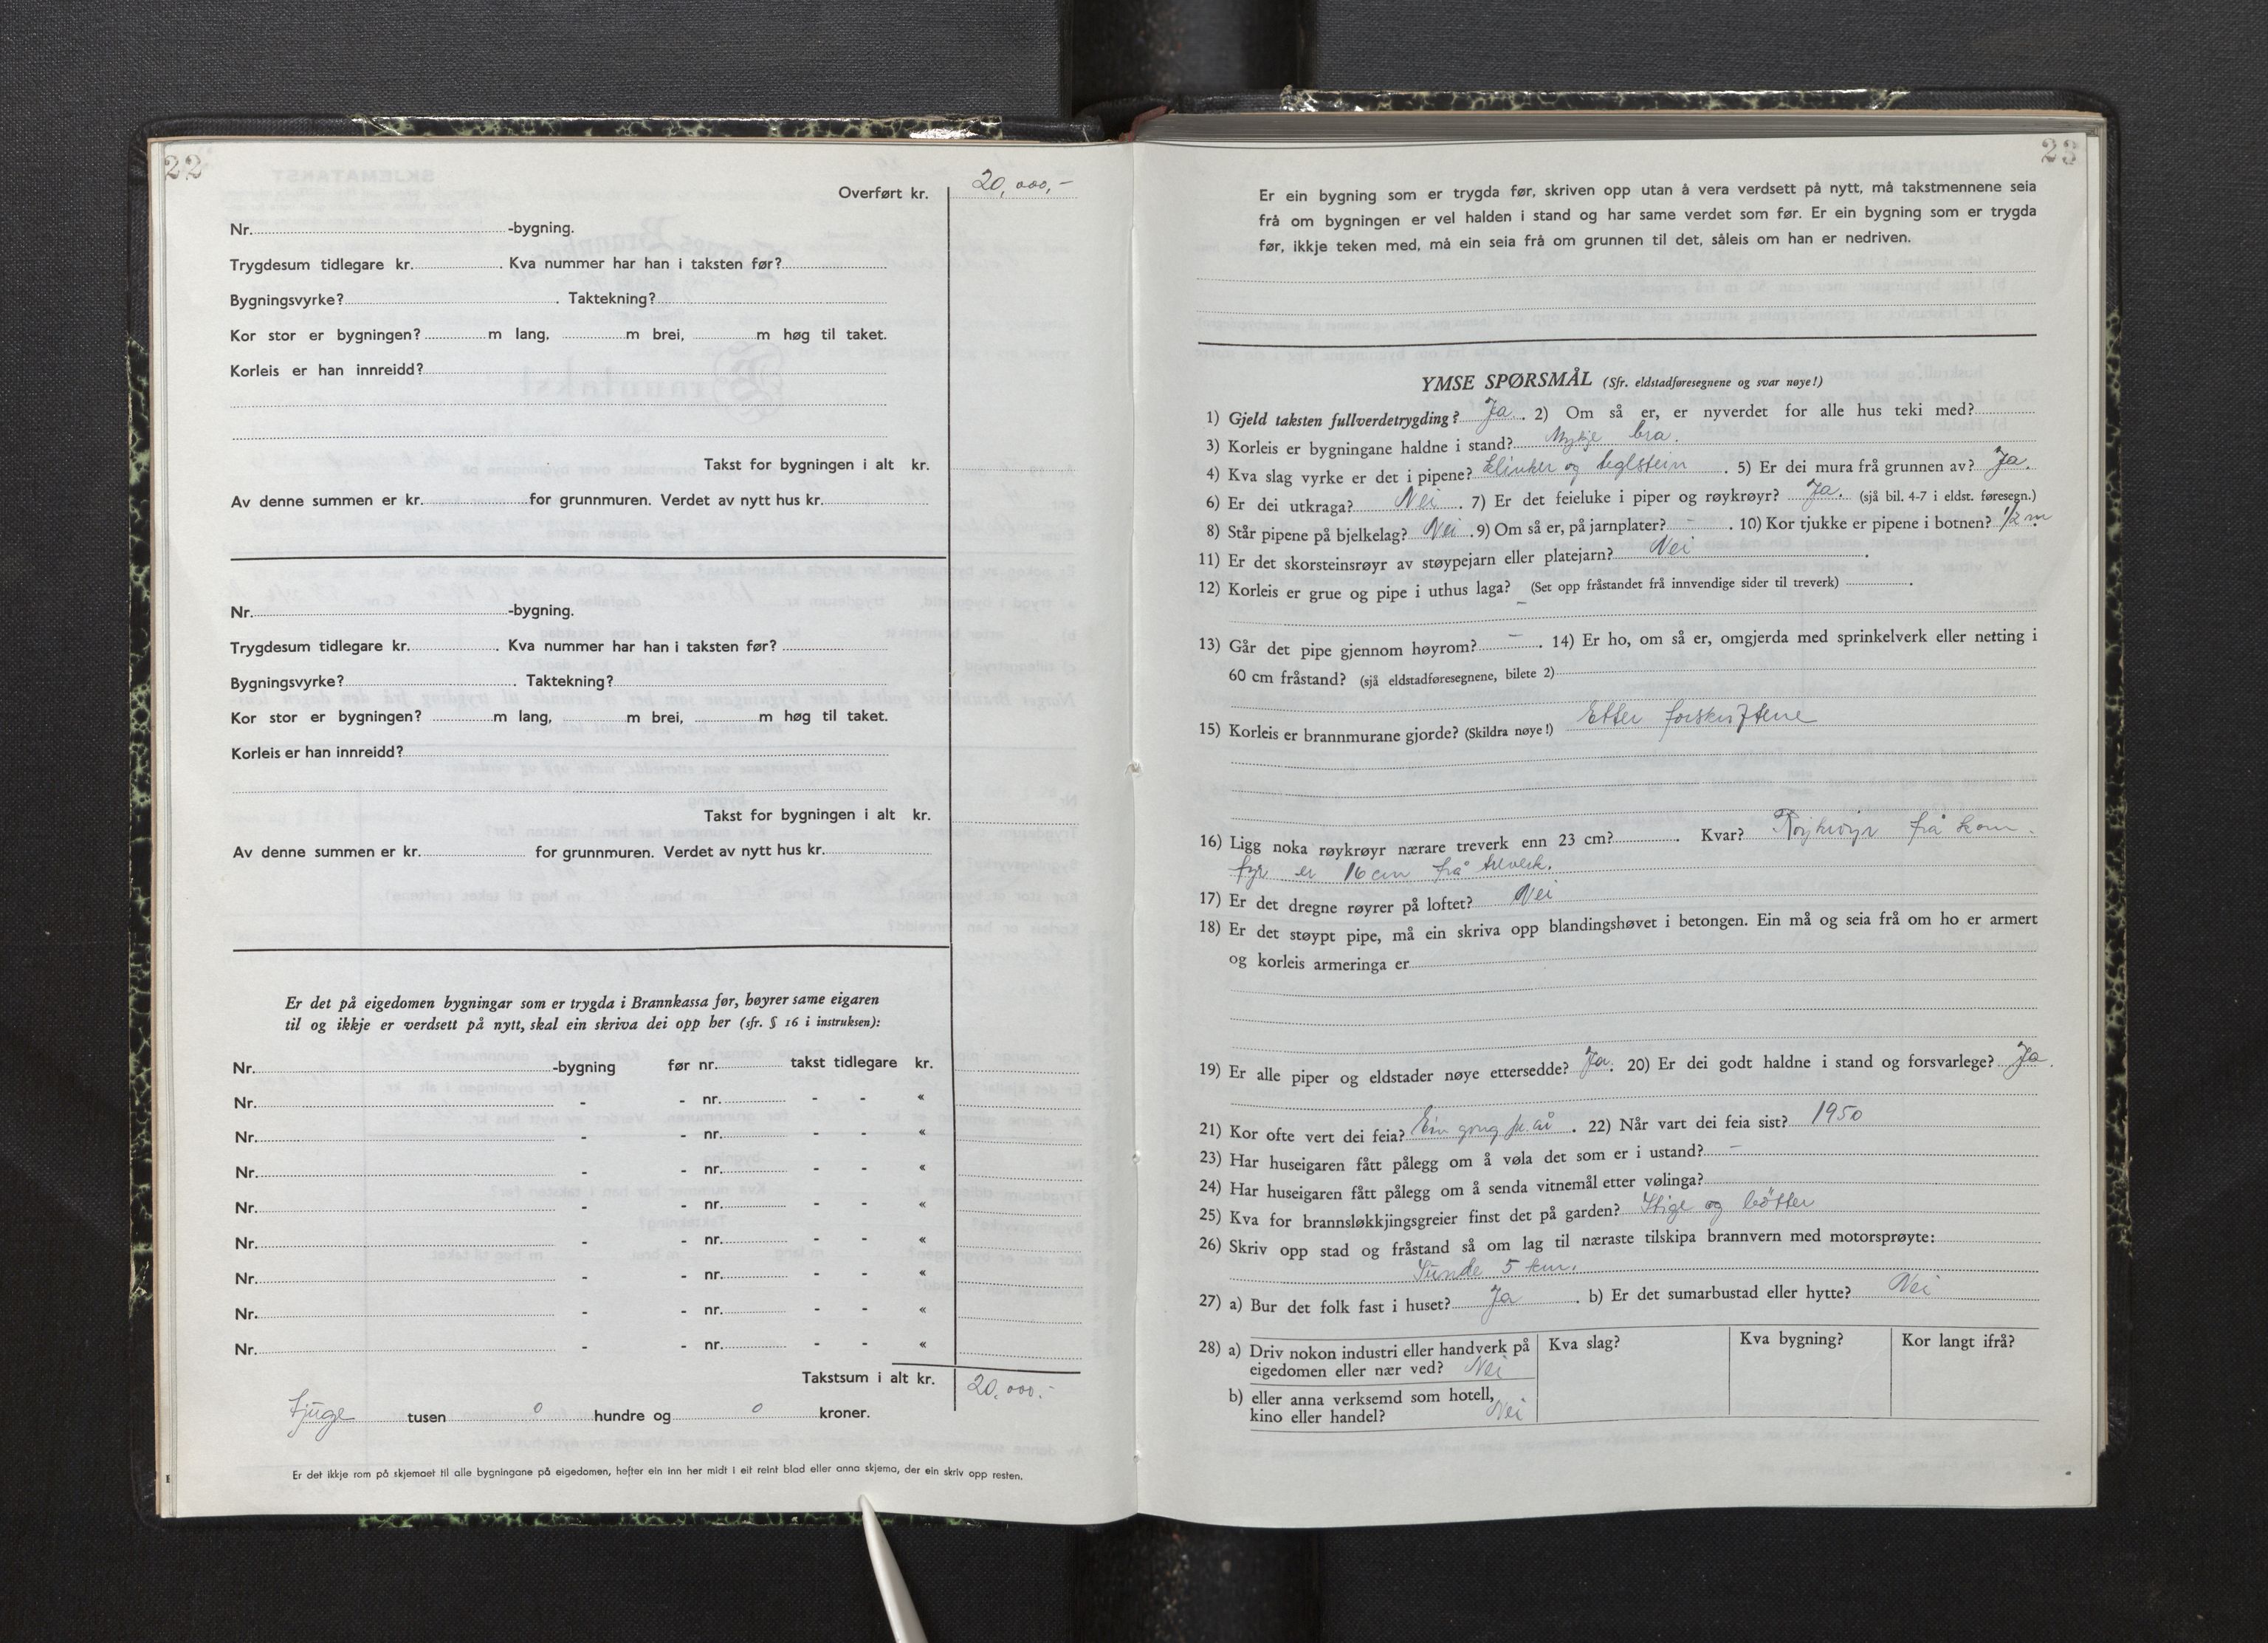 22
Overført kr. 20,000,-
Nr. -bygning.
Trygdesum tidlegare kr. . Kva nummer har han i taksten før?
Bygningsvyrke? . Taktekning?
Kor stor er bygningen? m lang, m brei, m høg til taket.
Korleis er han innreidd?
Takst for bygningen i alt kr.
Av denne summen er kr. for grunnmuren. Verdet av nytt hus kr.
Nr. -bygning.
Trygdesum tidlegare kr. . Kva nummer har han i taksten før?
Bygningsvyrke? . Taktekning?
Kor stor er bygningen? m lang, m brei, m høg til taket.
Korleis er han innreidd?
Takst for bygningen i alt kr.
Av denne summen er kr. for grunnmuren. Verdet av nytt hus kr.
Er det på eigedomen bygningar som er trygda i Brannkassa før, høyrer same eigaren
til og ikkje er verdsett på nytt, skal ein skriva dei opp her (sfr. § 16 i instruksen):
Nr. -bygning før nr. takst tidlegare kr.
Nr. - - nr. - - «
Nr. - - nr. - - «
Nr. - - nr. - - «
Nr. - - nr. - - «
Nr. - - nr. - - «
Nr. - - nr. - - «
Nr. - - nr. - - «
Nr. - - nr. - - «
Takstsum i alt kr. 20.000.-
tjuge tusen 0 hundre og 0 kroner.
Er det ikkje rom på skjemaet til alle bygningane på eigedomen, hefter ein inn her midt i eit reint blad eller anna skjema, der ein skriv opp resten.
23
Er ein bygning som er trygda før, skriven opp utan å vera verdsett på nytt, må takstmennene seia
frå om bygningen er vel halden i stand og har same verdet som før. Er ein bygning som er trygda
før, ikkje teken med, må ein seia frå om grunnen til det, såleis om han er nedriven.
YMSE SPØRSMÅL (Sfr. eldstadføresegnene og svar nøye!)
1) Gjeld taksten fullverdetrygding? Ja . 2) Om så er, er nyverdet for alle hus teki med?
3) Korleis er bygningane haldne i stand? Mykje bra.
4) Kva slag vyrke er det i pipene? klinker og teglstein . 5) Er dei mura frå grunnen av? Ja.
6) Er dei utkraga? Nei . 7) Er det feieluke i piper og røykrøyr? Ja. (sjå bil. 4-7 i eldst. føresegn.)
8) Står pipene på bjelkelag? Nei . 9) Om så er, på jarnplater? - . 10) Kor tjukke er pipene i botnen? 1/2 m.
11) Er det skorsteinsrøyr av støypejarn eller platejarn? Nei .
12) Korleis er grue og pipe i uthus laga? - (Set opp fråstandet frå innvendige sider til treverk) .
13) Går det pipe gjennom høyrom? - . 14) Er ho, om så er, omgjerda med sprinkelverk eller netting i
60 cm fråstand? (sjå eldstadføresegnene, bilete 2)
15) Korleis er brannmurane gjorde? (Skildra nøye!) Etter forskriftene
16) Ligg noka røykrøyr nærare treverk enn 23 cm? . Kvar? Røykrøyr frå kom.
fyr er 16 cm frå treverk.
17) Er det dregne røyrer på loftet? Nei
18) Er det støypt pipe, må ein skriva opp blandingshøvet i betongen. Ein må og seia frå om ho er armert
og korleis armeringa er
19) Er alle piper og eldstader nøye ettersedde? Ja. 20) Er dei godt haldne i stand og forsvarlege? Ja.
21) Kor ofte vert dei feia? Ein gong pr. år . 22) Når vart dei feia sist? 1950
23) Har huseigaren fått pålegg om å vøla det som er i ustand? -
24) Har huseigaren fått pålegg om å senda vitnemål etter vølinga?
25) Kva for brannsløkkjingsgreier finst det på garden? Stige og bøtter
26) Skriv opp stad og fråstand så om lag til næraste tilskipa brannvern med motorsprøyte:
Sunde 5 km.
27) a) Bur det folk fast i huset? Ja . b) Er det sumarbustad eller hytte? Nei
28) a) Driv nokon industri eller handverk på Kva slag? Kva bygning? Kor langt ifrå?
eigedomen eller nær ved? Nei
b) eller anna verksemd som hotell,
kino eller handel? Nei